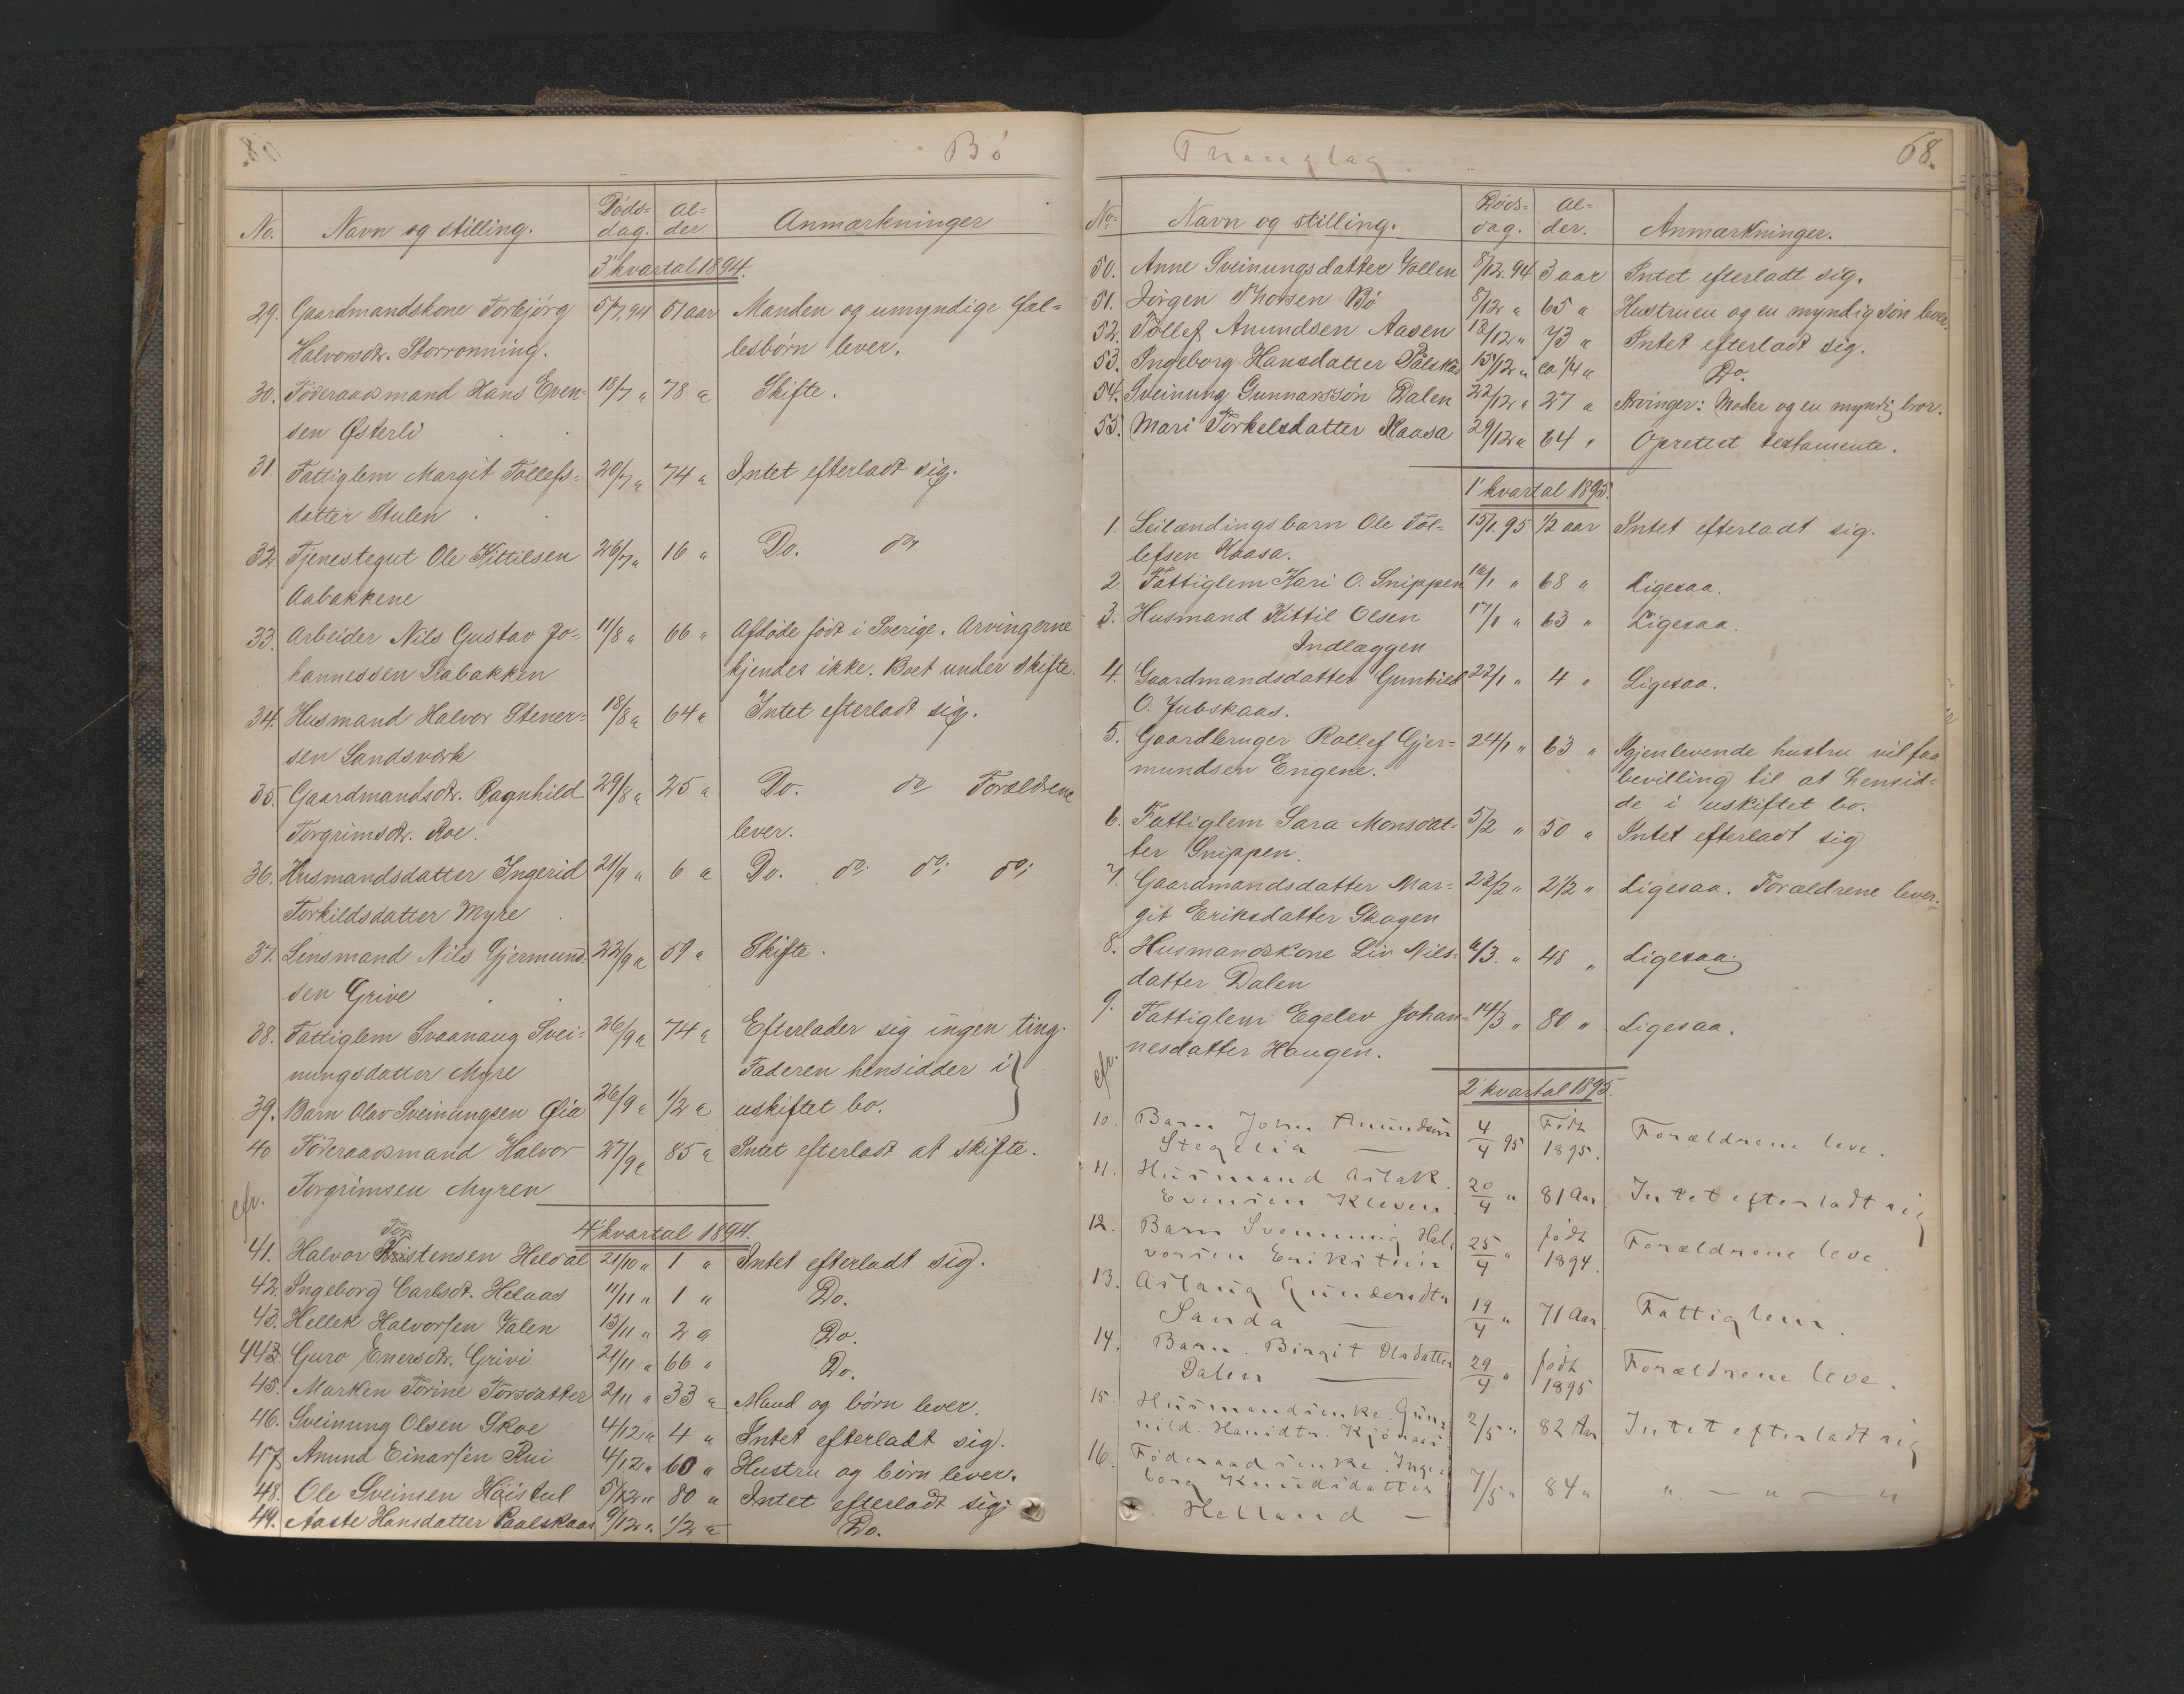 Bø
No. Navn og stilling. Døds= dag. Al= der. Anmærkninger
3' kvartal 1894.
29. Gaardmandskone Torbjørg 5/7.94 51 aar Manden og umyndige fæl=
Halvorsdtr. Storrønning. lesbørn lever.
30. Føderaadsmand Hans Even= 18/7 " 78 " Skifte.
sen Østerli
31 Fattiglem Margit Tollefs= 20/7 " 74 " Intet efterladt sig.
datter Stulen
32 Tjenestegut Ole Kittilsen 26/7 " 16 " Do. do
Aabakkene
33. Arbeider Nils Gustav Jo= 11/8 " 66 " Afdøde født i Sverige. Arvingerne
hannessen Labakken kjendes ikke. Boet under skifte.
34. Husmand Halvor Stener= 18/8 " 64 " Intet efterladt sig.
sen Sandsværk
35. Gaardmandsdtr. Ragnhild 29/8 " 25 " Do. do Forældrene
Torgrimsdtr. Roe. lever.
36. Husmandsdatter Ingerid 21/9 " 6 " Do. do. do; do;
Torkildsdatter Myre
37. Lensmand Nils Gjermund= 22/9 " 59 " Skifte.
sen Grive
38. Fattiglem Svaanaug Svei= 26/9 " 74 " Efterlader sig ingen ting.
nungsdatter Myre Faderen hensidder i
39. Barn Olav Sveinungsen Øia 26/9 " 1/2 " uskiftet bo.
40 Føderaadsmand Halvor 27/9 " 85 " Intet efterladt at skifte.
Torgrimsen Myren
cfr.
4' kvartal 1894.
41. Halvor Kristensen Heldal 21/10 " 1 " Intet efterladt sig.
42. Ingeborg Carlsdt. Helaas 11/11 " 1 " Do.
43. Hellek Halvorsen Valen 13/11 " 2 " Do.
44. Guro Enersdtr. Grivi 21/11 " 66 " Do.
45. Marken Torine Torsdatter 2/11 " 33 " Mand og børn lever.
46. Sveinung Olsen Skoe 4/12 " 4 " Intet efterladt sig.
47 Anund Einarsen Rui 4/12 " 60 " Hustru og børn lever.
48. Ole Sveinsen Høistul 5/12 " 80 " Intet efterladt sig;
49. Aaste Hansdatter Paalskaas 9/12 " 1/2 " Do.
Thinglag. 68.
No. Navn og stilling. Døds= dag. Al= der. Anmærkninger.
50. Anne Sveinungsdatter Vollen 8/12.94 3 aar Intet efterladt sig.
51. Jørgen Thorsen Bø 8/12 " 65 " Hustruen og en myndig søn lever.
52. Tollef Amundsen Aasen 12/12 " 73 " Intet efterladt sig.
53. Ingeborg Hansdatter Pålskås 15/12 " ca 1/4 " Do.
54. Sveinung Gunnarssøn Dalen 22/12 " 27 " Arvinger: Moder og en myndig bror.
55. Mari Torkelsdatter Kaasa 29/12 " 64 " Oprettet testamente.
1' kvartal 1895.
1. Leilændingsbarn Ole Tol= 15/1.95 1/2 aar Intet efterladt sig.
lefsen Kaasa.
2. Fattiglem Kari O. Snippen 16/1 " 68 " Ligesaa.
3. Husmand Kittil Olsen 17/1 " 63 " Ligesaa.
Indlæggen
4. Gaardmandsdatter Gunhild 22/1 " 4 " Ligesaa.
O. Jubskaas.
5. Gaardbruger Rollef Gjer= 24/1 " 63 " Igjenlevende hustru vil faa
mundsen Engene. bevilling til at hensid=
de i uskiftet bo.
6. Fattiglem Sara Monsdat= 5/2 " 50 " Intet efterladt sig
ter Snippen.
7. Gaardmandsdatter Mar= 23/2 " 2 1/2 " Ligesaa. Forældrene lever.
git Eriksdatter Skogen
8. Husmandskone Liv Niels= 6/3. " 48 " Ligesaa;
datter Dalen
9. Fattiglem Egelev Johan= 14/3 " 80 " Ligesaa.
nesdatter Haugen.
cfr.
2' kvartal 1895.
10. Barn John Amundsen 4/4 95 Født 1895. Forældrene leve.
Stegelia —
11. Husmand Aslak 20/4 " 81 Aar Intet efterladt sig
Evensen Kleven
12. Barn Svennung Hal= 25/4 " født 1894. Forældrene leve
vorsen Erikstein
13. Aslaug Gundersdtr 19/4 " 71 Aar Fattiglem.
Sanda —
14. Barn. Birgit Olsdatter 29/4 " født 1895 Forældrene leve.
Dalen —
15. Husmandsenke Gun= 2/5 " 82 Aar Intet efterladt sig
nild. Hansdtr. Kjønaas
16. Føderaadsenke. Inge= 7/5 " 84 " " — " — "
borg Knudsdatter
Helland —